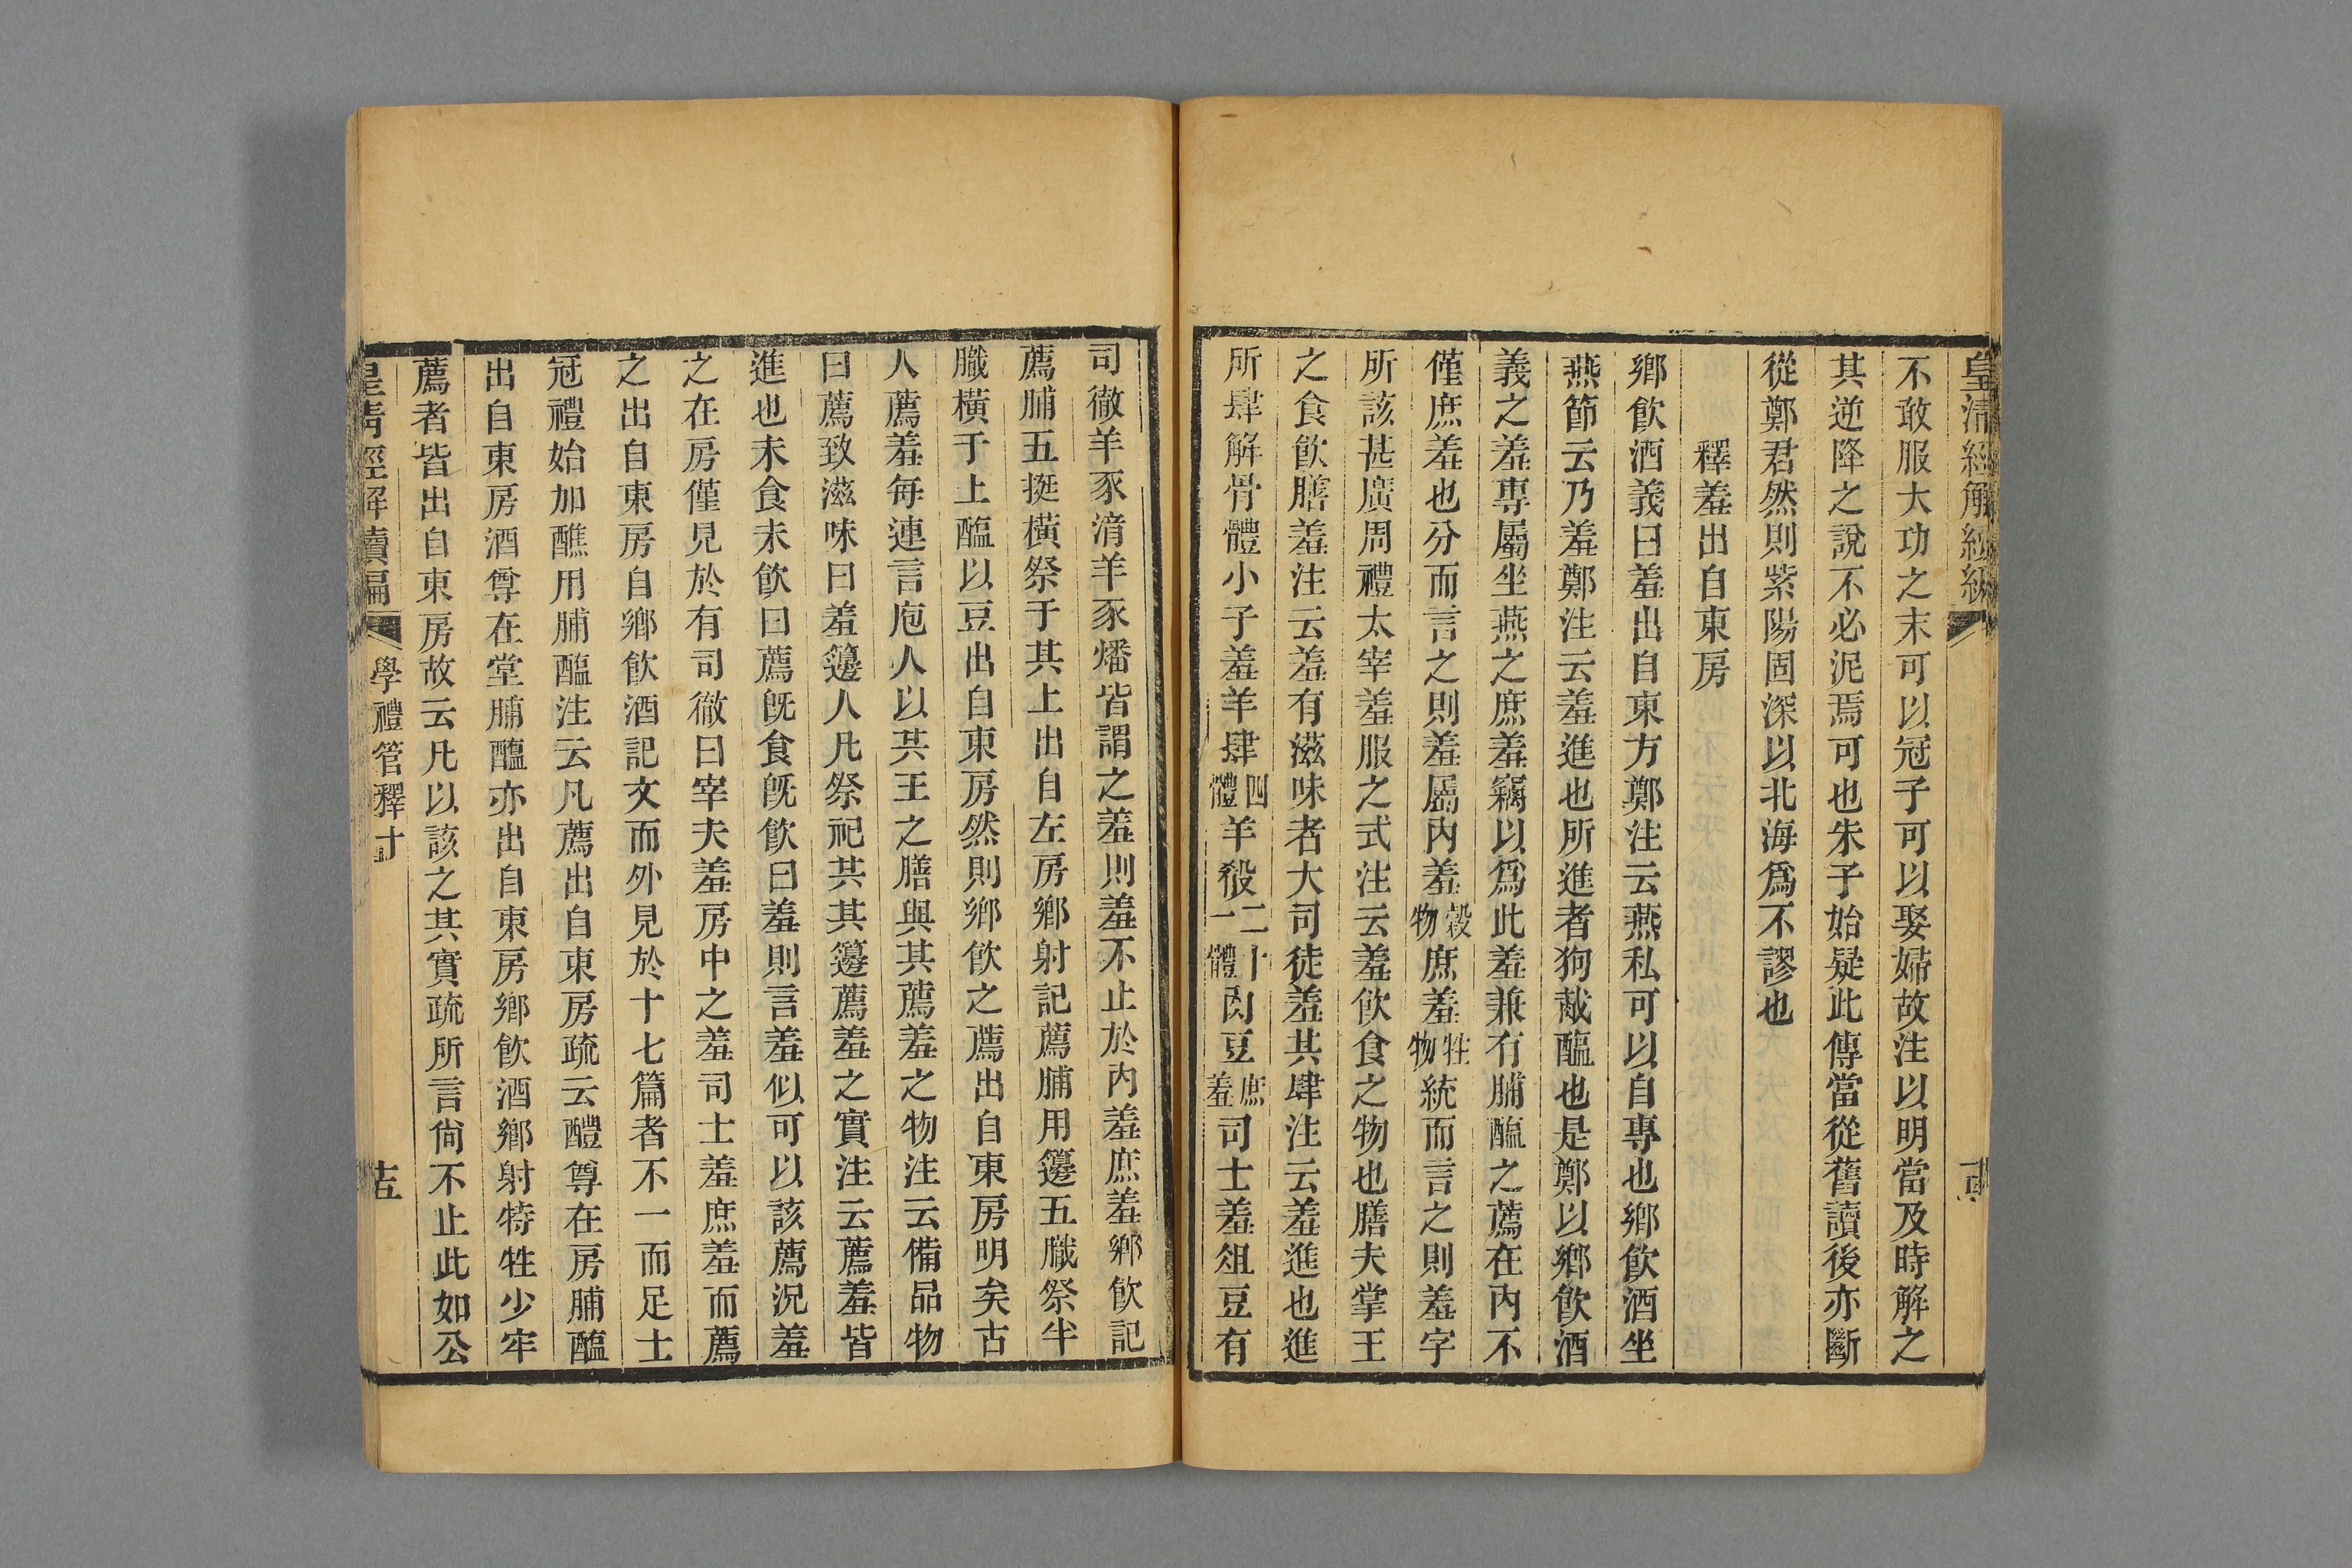 皇清經解續編
不敢服大功之末可以冠子可以娶婦故注以明當及時解之
其逆降之說不必泥焉可也朱子始疑此傳當從舊讀後亦斷
從鄭君然則紫陽固深以北海爲不謬也
釋羞出自東房
鄉飮酒義曰羞出自東方鄭注云燕私可以自專也鄉飮酒坐
燕節云乃羞鄭注云羞進也所進者狗胾醢也是鄭以鄉飮酒
義之羞專屬坐燕之庶羞竊以爲此羞兼有脯醢之薦在內不
僅庶羞也分而言之則羞屬內羞穀物庶羞牲物統而言之則羞字
所該甚廣周禮太宰羞服之式注云羞飮食之物也膳夫掌王
之食飮膳羞注云羞有滋味者大司徒羞其肆注云羞進也進
所肆解骨體小子羞羊肆四體羊殽二十一體肉豆庶羞司士羞俎豆有
司徹羊豕湆羊豕燔皆謂之羞則羞不止於內羞庶羞鄉飮記
薦脯五挺橫祭于其上出自左房鄉射記薦脯用籩五膱祭半
膱橫于上醢以豆出自東房然則鄉飮之薦出自東房明矣古
人薦羞每連言庖人以共王之膳與其薦羞之物注云備品物
曰薦致滋味曰羞籩人凡祭祀共其籩薦羞之實注云薦羞皆
進也未食未飮曰薦旣食旣飮曰羞則言羞似可以該薦況羞
之在房僅見於有司徹曰宰夫羞房中之羞司士羞庶羞而薦
之出自東房自鄉飮酒記文而外見於十七篇者不一而足士
冠禮始加醮用脯醢注云凡薦出自東房疏云醴尊在房脯醢
出自東房酒尊在堂脯醢亦出自東房鄉飮酒鄉射特牲少牢
薦者皆出自東房故云凡以該之其實疏所言尙不止此如公
皇淸經解續編
學禮管釋十
十五